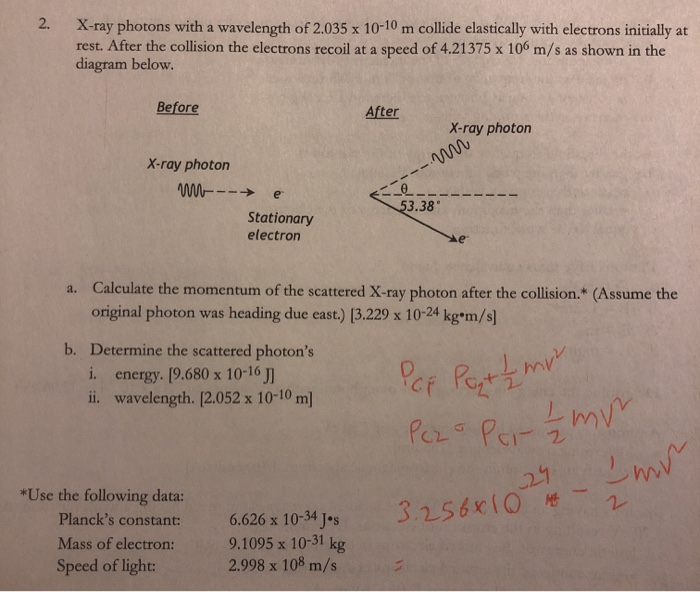 2. X-ray photons with a wavelength of 2.035 x 10⁻¹⁰ m collide elastically with electrons initially at
rest. After the collision the electrons recoil at a speed of 4.21375 x 10⁶ m/s as shown in the
diagram below.
Before
After
X-ray photon
X-ray photon
θ
e⁻
53.38°
Stationary
electron
e⁻
a. Calculate the momentum of the scattered X-ray photon after the collision.* (Assume the
original photon was heading due east.) [3.229 x 10⁻²⁴ kg•m/s]
b. Determine the scattered photon's
i. energy. [9.680 x 10⁻¹⁶ J]
ii. wavelength. [2.052 x 10⁻¹⁰ m]
Pc₂ + 1/2 mv²
Pc2 = Pc1 - 1/2 mv²
3.256x10⁻²⁴ - 1/2 mv²
=
*Use the following data:
Planck's constant: 6.626 x 10⁻³⁴ J•s
Mass of electron: 9.1095 x 10⁻³¹ kg
Speed of light: 2.998 x 10⁸ m/s